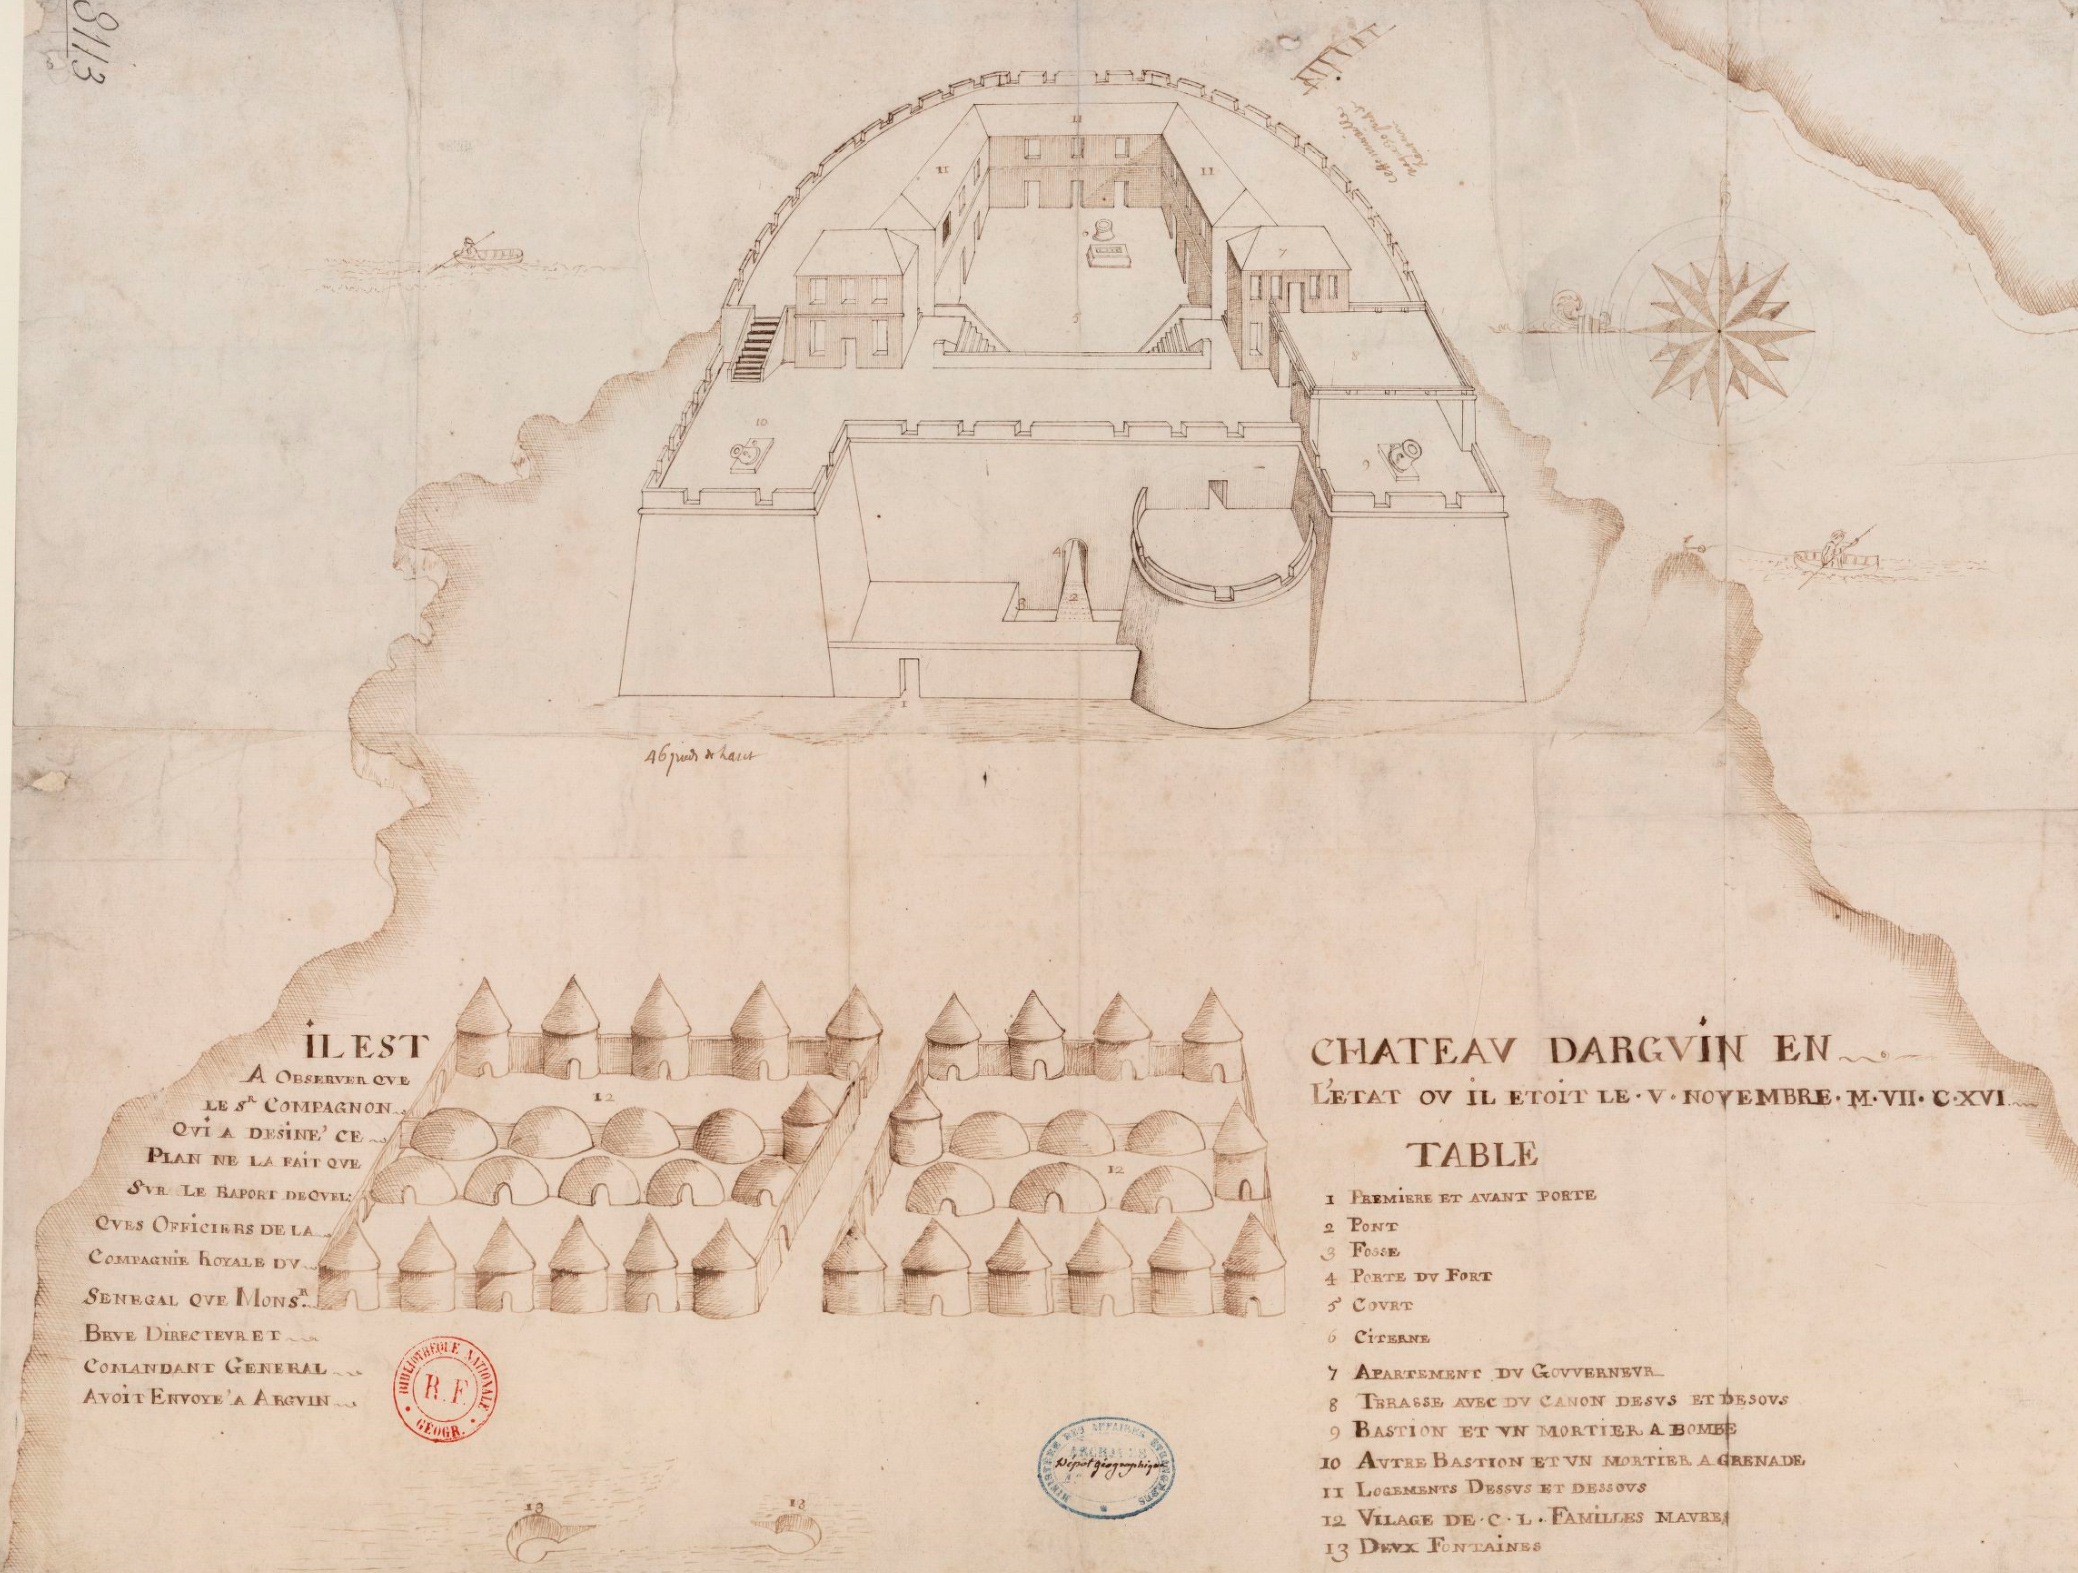 8113
11
11
11
7
5
8
10
9
4
3
2
1
46 pieds de haut
cette muraille
12
12
13
13
iL EST
A OBSERVER QVE
LE Sᴿ COMPAGNON
QVi A DESiNE' CE
PLAN NE LA FAiT QVE
SVR LE RAPORT DE QVEL:
QVES OFFiCiERS DE LA
COMPAGNiE ROYALE DV
SENEGAL QVE MONSᴿ.
BRVE DiRECTEVR ET
COMANDANT GENERAL
AVOiT ENVOYE' A ARGViN
CHATEAV DARGViN EN
L'ETAT OV iL ETOiT LE · V · NOVEMBRE · M · VII · C · XVI
TABLE
1 PREMiERE ET AVANT PORTE
2 PONT
3 FOSSE
4 PORTE DV FORT
5 COVRT
6 CiTERNE
7 APARTEMENT DV GOVVERNEVR
8 TERASSE AVEC DV CANON DESVS ET DESOVS
9 BASTiON ET VN MORTiER A BOMBE
10 AVTRE BASTiON ET VN MORTiER A GRENADE
11 LOGEMENTS DESSVS ET DESSOVS
12 ViLAGE DE · C · L · FAMiLLES MAVRES
13 DEVX FONTAiNES
BIBLIOTHÈQUE NATIONALE
R.F.
GÉOGR.
MINISTÈRE DES AFFAIRES ÉTRANGÈRES
ARCHIVES
Dépôt géographique